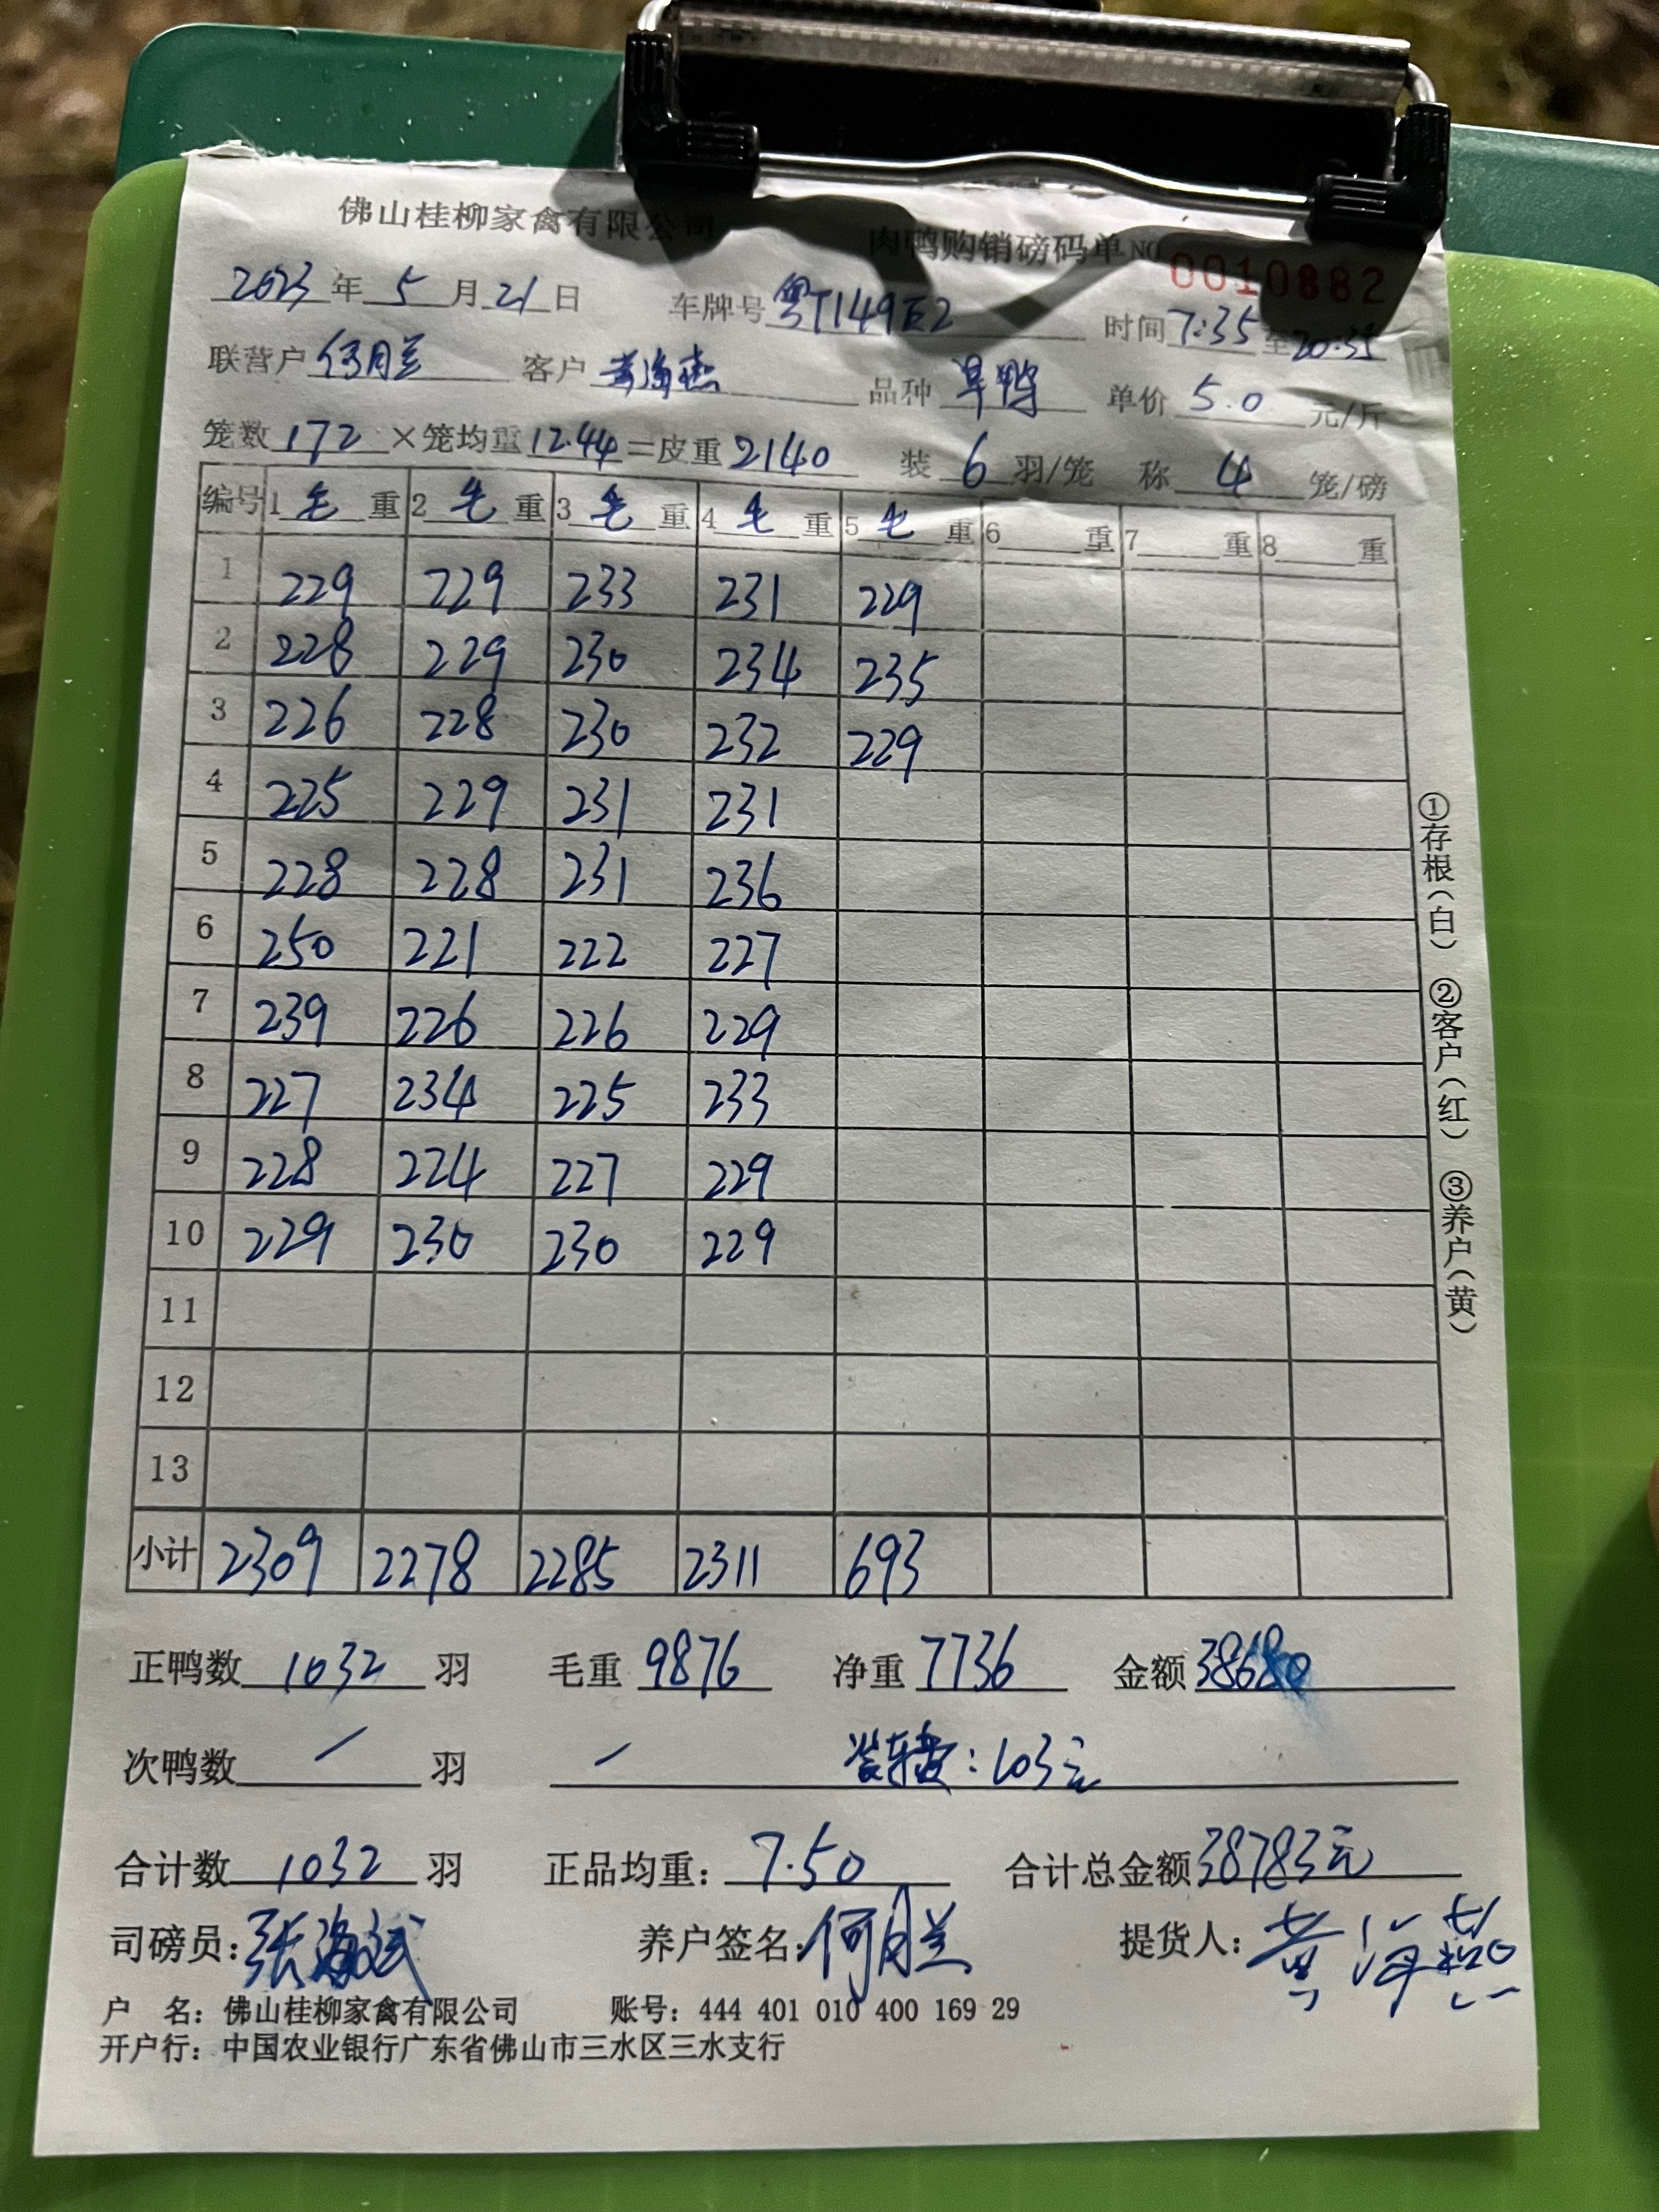 佛山桂柳家禽有限公司 肉鸭购销磅码单 NO 0010882
2023年5月21日 车牌号 粤T149E2 时间 7:35至20:35
联营户 何月兰 客户 黄海燕 品种 旱鸭 单价 5.0 元/斤
笼数 172 ×笼均重 12.44 =皮重 2140 装 6 羽/笼 称 4 笼/磅
编号 1 毛 重 2 毛 重 3 毛 重 4 毛 重 5 毛 重 6 重 7 重 8 重
1 229 229 233 231 229
2 228 229 230 234 235
3 226 228 230 232 229
4 225 229 231 231
5 228 228 231 236
6 250 221 222 227
7 239 226 226 229
8 227 234 225 233
9 228 224 227 229
10 229 230 230 229
11
12
13
小计 2309 2278 2285 2311 693
正鸭数 1032 羽 毛重 9876 净重 7736 金额 38680
次鸭数 / 羽 / 装车费：103元
合计数 1032 羽 正品均重：7.50 合计总金额 38783元
司磅员：张海 养户签名：何月兰 提货人：黄海燕
户 名：佛山桂柳家禽有限公司 账号：444 401 010 400 169 29
开户行：中国农业银行广东省佛山市三水区三水支行
①存根（白） ②客户（红） ③养户（黄）